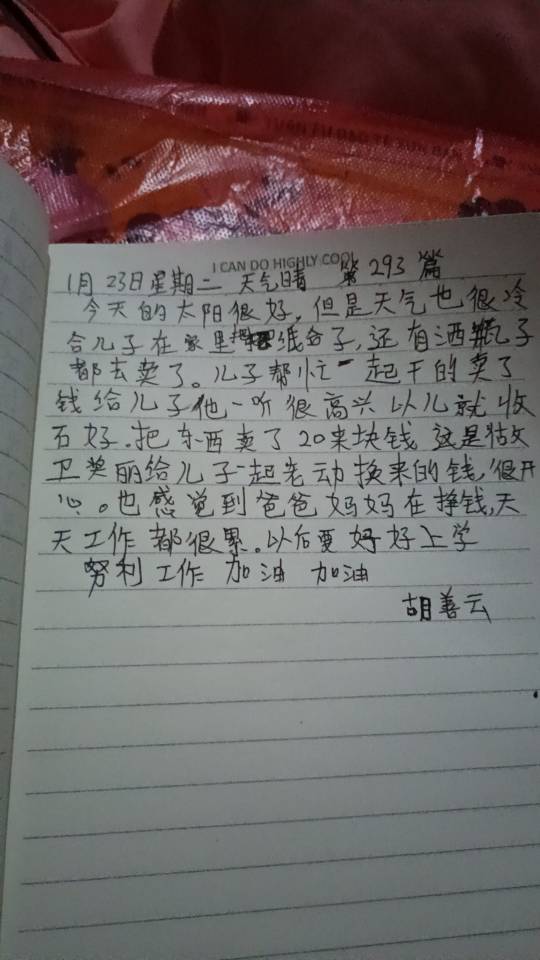 I CAN DO HIGHLY COOL
1月23日星期二 天气晴 第293篇
今天的太阳很好,但是天气也很冷
合儿子在家里把纸合子,还有洒瓶子
都去卖了。儿子帮忙一起干的卖了
钱给儿子他一听很高兴以儿就收
石好.把东西卖了20来块钱 这是姑女
卫奖丽给儿子一起劳动换来的钱,很开
心。也感觉到爸爸妈妈在挣钱,天
天工作都很累。以后要好好上学
努利工作 加油 加油
胡善云